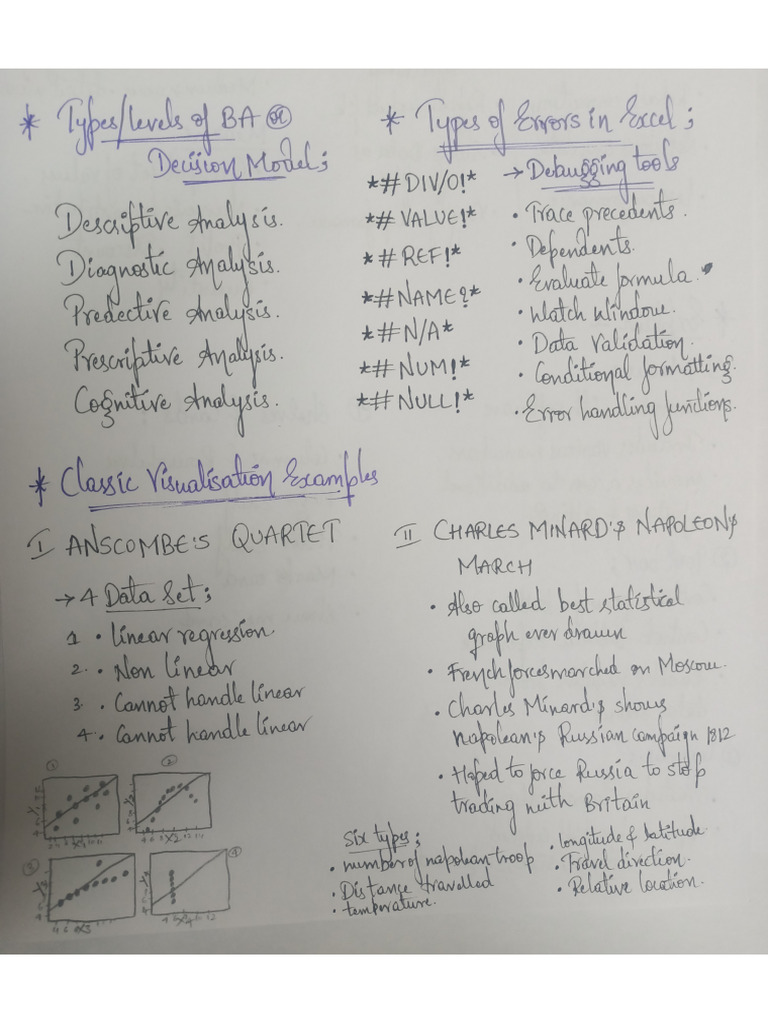 * Types/levels of BA or
Decision Model;
Descriptive Analysis.
Diagnostic Analysis.
Predective Analysis.
Prescriptive Analysis.
Cognitive Analysis.
* Types of Errors in Excel;
*#DIV/0!*
*#VALUE!*
*#REF!*
*#NAME?*
*#N/A*
*#NUM!*
*#NULL!*
→ Debugging tools
• Trace precedents.
• Dependents.
• Evaluate formula.
• Watch Window.
• Data Validation.
• Conditional formatting.
• Error handling functions.
* Classic Visualisation Examples
I ANSCOMBE'S QUARTET
→ 4 Data Set;
1 • linear regression.
2. • Non linear
3. • Cannot handle linear
4. • Cannot handle linear
① ②
③ ④
X2
X3
X4
II CHARLES MINARD'S NAPOLEON'S
MARCH
• Also called best statistical
graph ever drawn
• French forces marched on Moscow.
• Charles Minard's shows
napolean's Russian campaign 1812
• Hoped to force Russia to stop
trading with Britain
Six types;
• number of napolean troop
• Distance travelled
• temperature.
• longitude & latitude.
• Travel direction.
• Relative location.